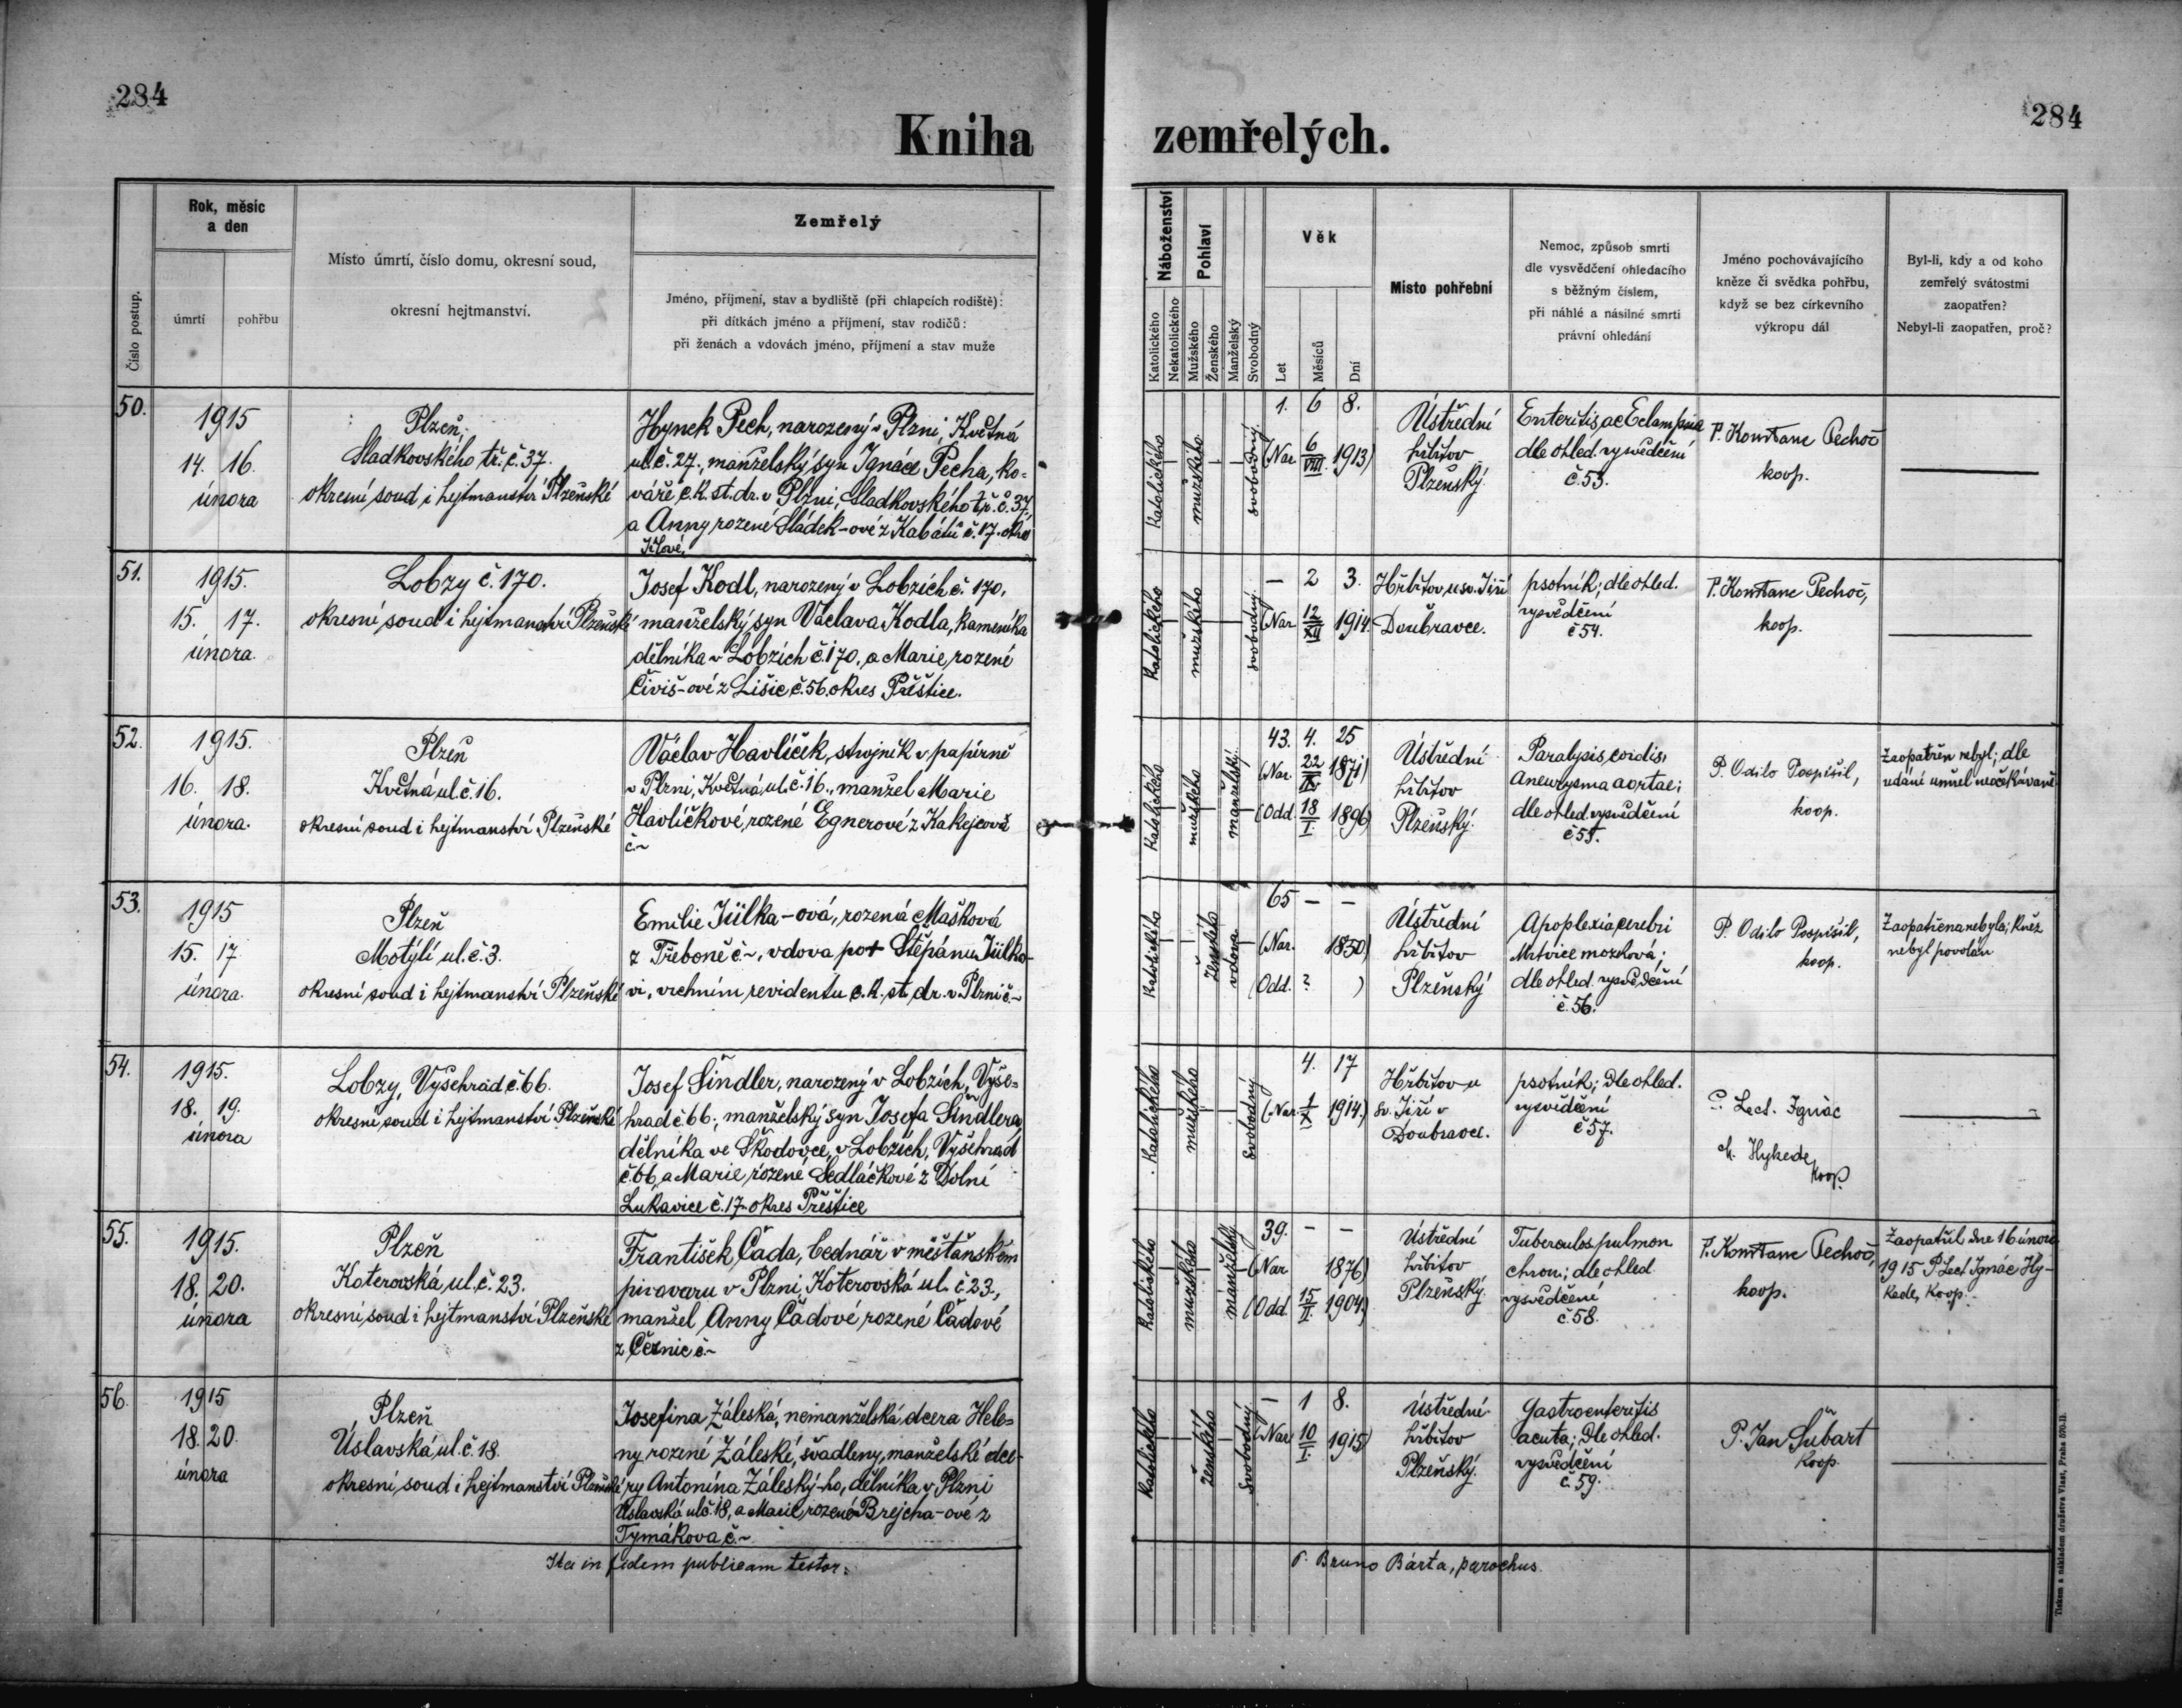 284
284
Kniha zemřelých.
Číslo postup.
Rok, měsíc
a den
úmrtí
pohřbu
Místo úmrtí, číslo domu, okresní soud,
okresní hejtmanství.
Zemřelý
Jméno, příjmení, stav a bydliště (při chlapcích rodiště):
při dítkách jméno a příjmení, stav rodičů:
při ženách a vdovách jméno, příjmení a stav muže
Náboženství
Katolického
Nekatolického
Pohlaví
Mužského
Ženského
Manželský
Svobodný
Věk
Let
Měsíců
Dní
Místo pohřební
Nemoc, způsob smrti
dle vysvědčení ohledacího
s běžným číslem,
při náhlé a násilné smrti
právní ohledání
Jméno pochovávajícího
kněze či svědka pohřbu,
když se bez církevního
výkropu dál
Byl-li, kdy a od koho
zemřelý svátostmi
zaopatřen?
Nebyl-li zaopatřen, proč?
50.
1915
14. 16.
února
Plzeň,
Sladkovského tř. č. 37.
okresní soud i hejtmanství Plzeňské
Hynek Pech, narozený v Plzni, Květná
ul. č. 27., manželský syn Ignáce Pecha, ko-
váře c. k. st. dr. v Plzni, Sladkovského tř. č. 37
a Anny rozené Sládek-ové z Kabátů č. 17. okr.
Jílové.
katolického
mužského
svobodný
1. 6 8.
(Nar. 6/VIII. 1913)
Ústřední
hřbitov
Plzeňský.
Enteritis ac Eclampsia
dle ohled. vysvědčení
č. 53.
P. Konstanc Pechoč
koop.
51.
1915.
15. 17.
února.
Lobzy č. 170.
okresní soud i hejtmanství Plzeňské
Josef Kodl, narozený v Lobzích č. 170,
manželský syn Václava Kodla, kameníka
dělníka v Lobzích č. 170, a Marie, rozené
Čiviš-ové z Lišic č. 56. okres Přeštice.
katolického
mužského
svobodný
– 2 3.
(Nar. 12/XII 1914.
Hřbitov u sv. Jiří
Doubravce.
psotník; dle ohled.
vysvědčení
č 54.
P. Konstanc Pechoč,
koop.
52.
1915.
16. 18.
února.
Plzeň
Květná ul. č. 16.
okresní soud i hejtmanství Plzeňské
Václav Havlíček, strojník v papírně
v Plzni, Květná ul. č. 16., manžel Marie
Havlíčkové, rozené Egnerové z Kakejcova
č.~
katolického
mužského
manželský
43. 4. 25
(Nar. 22/IX 1871)
(Odd. 18/I. 1896)
Ústřední
hřbitov
Plzeňský.
Paralysis cordis,
Aneurysma aortae;
dle ohled. vysvědčení
č 55.
P. Odilo Pospíšil,
koop.
Zaopatřen nebyl; dle
udání umřel neočekávaně.
53.
1915
15. 17.
února.
Plzeň
Motýlí ul. č. 3.
okresní soud i hejtmanství Plzeňské
Emilie Jülka-ová, rozená Mašková
z Třeboně č.~, vdova po † Štěpánu Jülko-
vi, vrchním revidentu c. k. st. dr. v Plzni č.~
katolického
ženského
vdova
65 – –
(Nar. 1850)
(Odd. ? )
Ústřední
hřbitov
Plzeňský
Apoplexia cerebri
Mrtvice mozková;
dle ohled. vysvědčení
č. 56.
P. Odilo Pospíšil,
koop.
Zaopatřena nebyla; kněz
nebyl povolán
54.
1915.
18. 19.
února
Lobzy, Vyšehrad č. 66.
okresní soud i hejtmanství Plzeňské
Josef Šindler, narozený v Lobzích, Vyše-
hrad č 66., manželský syn Josefa Šindlera,
dělníka ve Škodovce, v Lobzích, Vyšehrad
č. 66, a Marie, rozené Sedláčkové z Dolní
Lukavice č. 17. okres Přeštice
katolického
mužského
svobodný
4. 17
(Nar. 1/X 1914.)
Hřbitov u
sv. Jiří v
Doubravce.
psotník; dle ohled.
vysvědčení
č 57.
P. Lect. Ignác
M. Hykede
koop.
55.
1915.
18. 20.
února
Plzeň
Koterovská ul. č. 23.
okresní soud i hejtmanství Plzeňské
František Čada, bednář v měšťanském
pivovaru v Plzni, Koterovská ul. č 23.,
manžel Anny Čadové rozené Čadové
z Černic č.~
katolického
mužského
manželský
39. – –
(Nar 1876)
(Odd. 15/II. 1904)
Ústřední
hřbitov
Plzeňský.
Tuberculos. pulmon
chron; dle ohled
vysvědčení
č. 58.
P. Konstanc Pechoč,
koop.
Zaopatřil dne 16 února
1915 P. Lect Ignác Hy-
kede, koop.
56.
1915
18. 20.
února
Plzeň
Úslavská ul. č. 18.
okresní soud i hejtmanství Plzeňské
Josefina Záleská, nemanželská dcera Hele-
ny rozené Záleské, švadleny, manželské dce-
ry Antonína Záleský-ho, dělníka v Plzni
Úslavská ul č. 18, a Marie, rozené Brejcha-ové z
Tymákova č.~
katolického
ženského
svobodný
– 1 8.
(Nar. 10/I. 1915)
Ústřední
hřbitov
Plzeňský.
Gastroenteritis
acuta; Dle ohled.
vysvědčení
č. 59.
P. Jan Šubart
koop.
Ita in fidem publicam testor:
P. Bruno Bárta, parochus.
Tiskem a nákladem družstva Vlast, Praha 570-II.